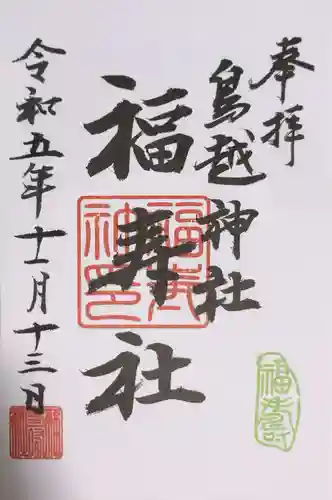 奉拝
鳥越神社
福寿社
令和五年十一月十三日
福寿